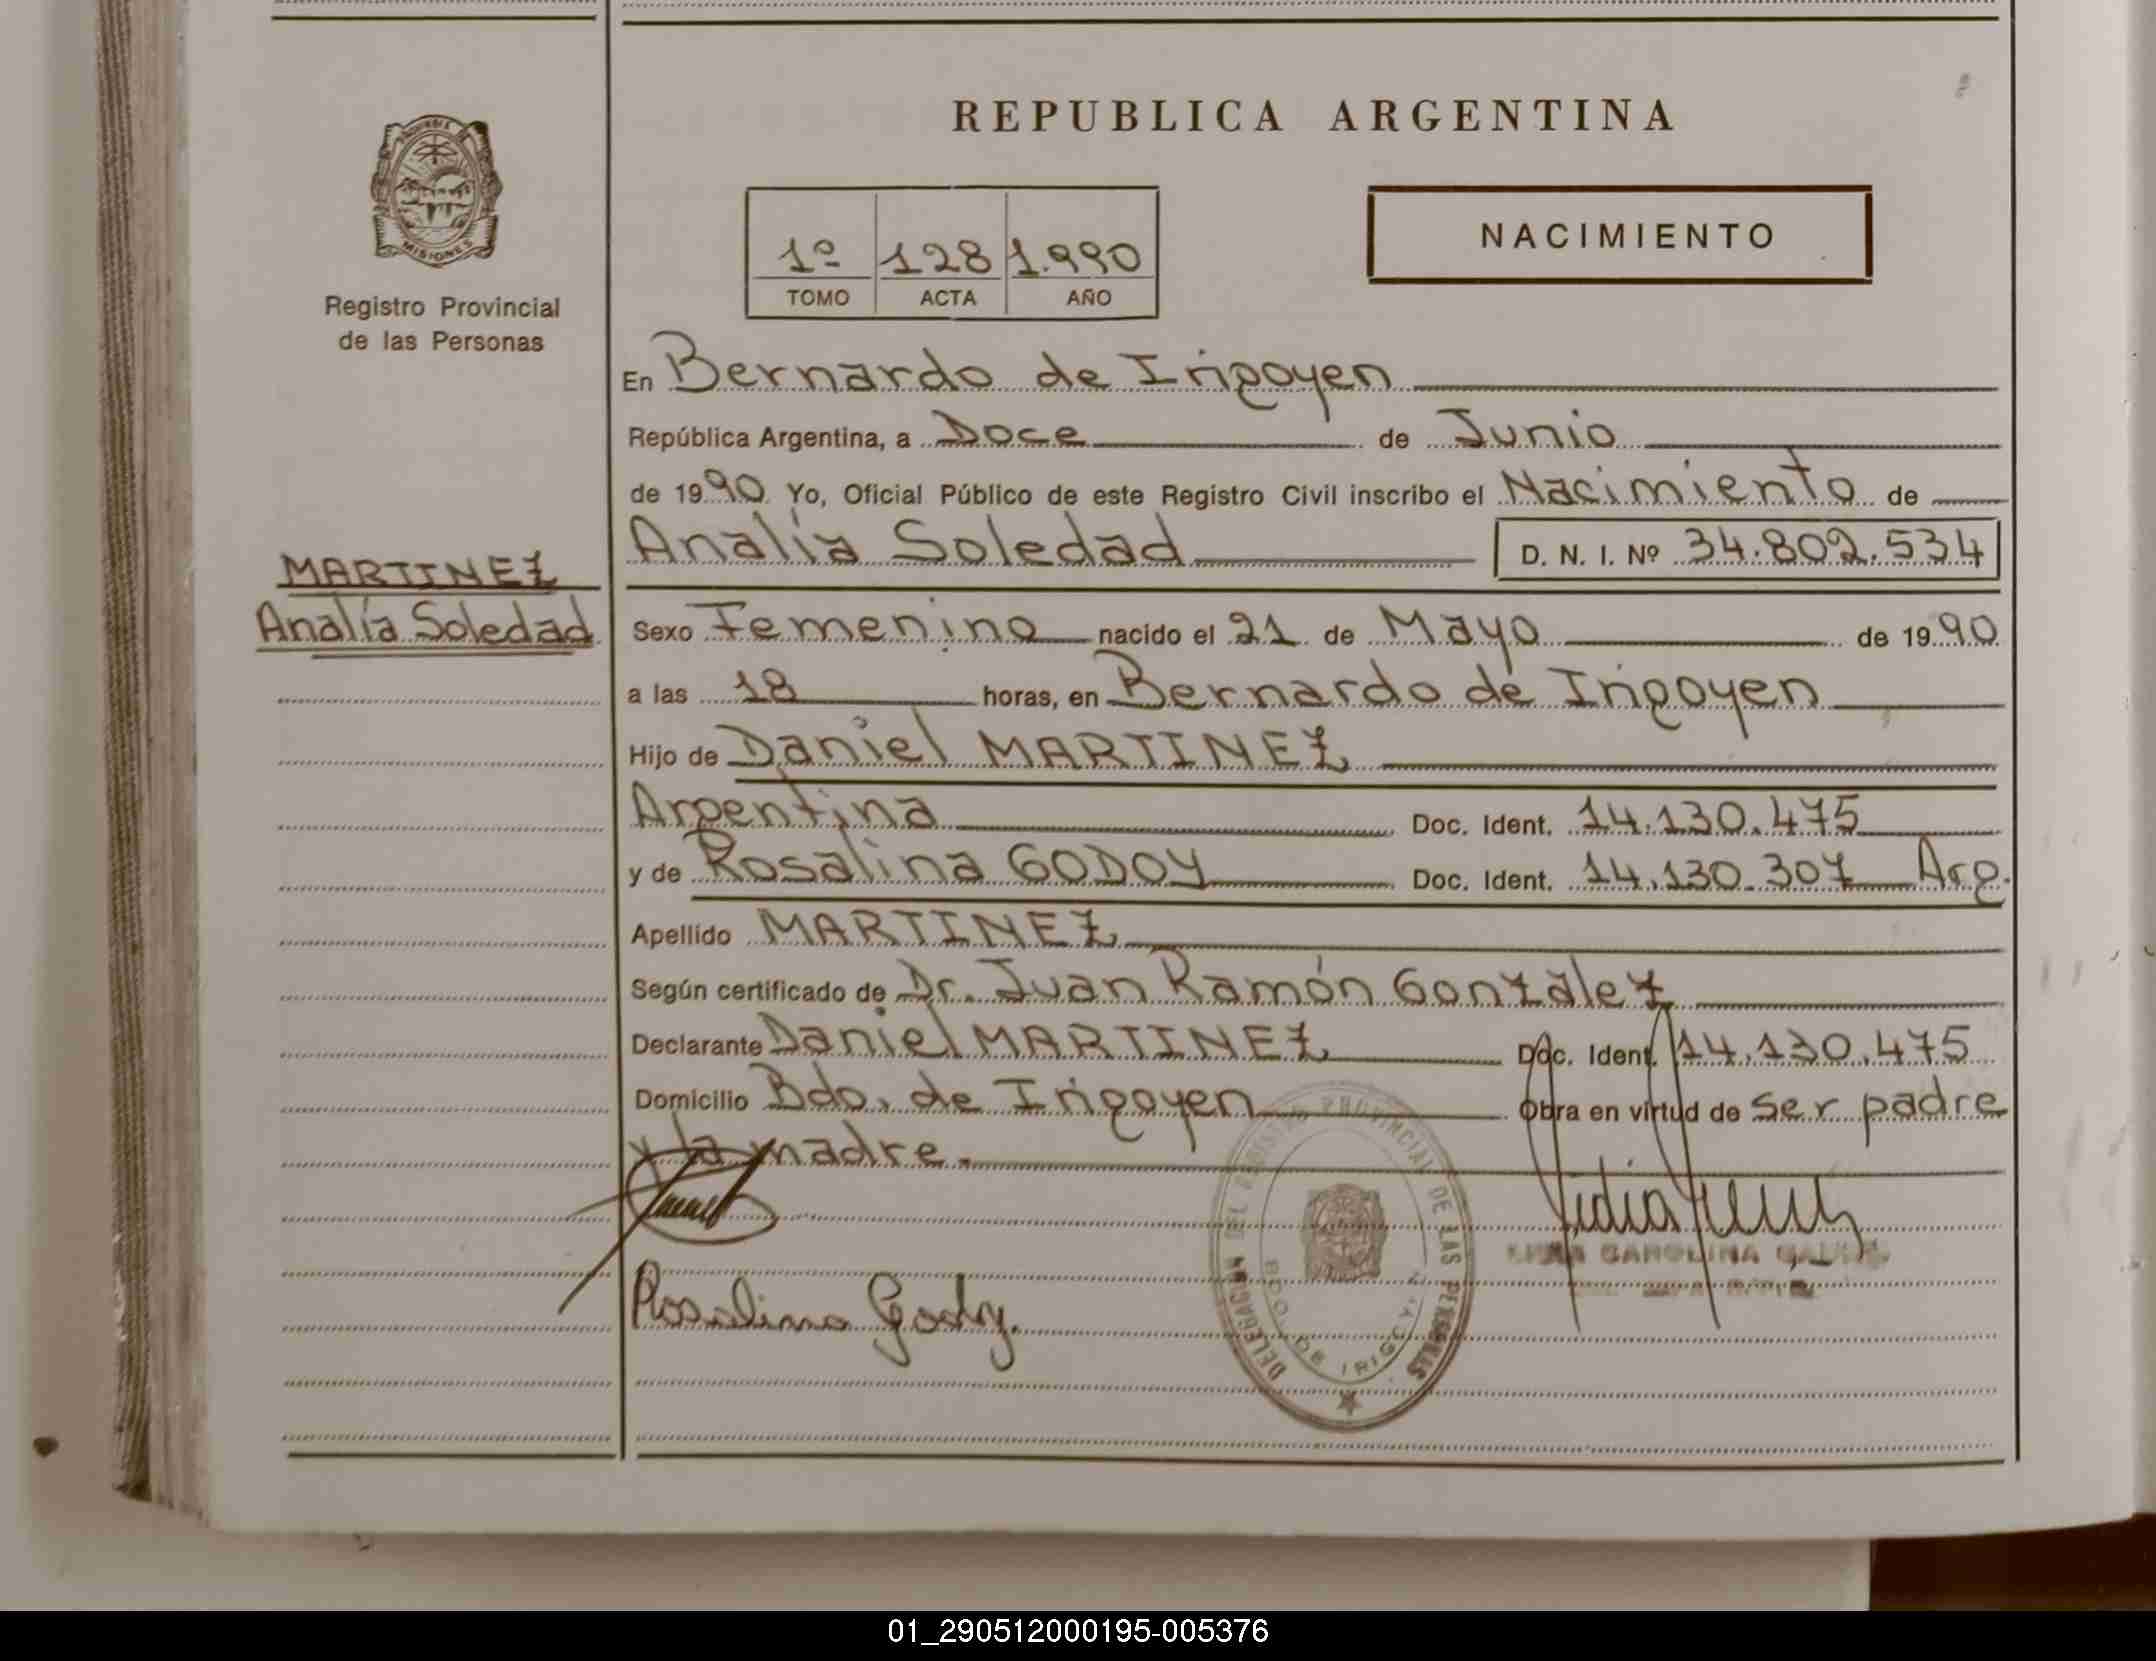 REPUBLICA ARGENTINA
PROVINCIA
MISIONES
Registro Provincial
de las Personas
1º 128 1.990
TOMO ACTA AÑO
NACIMIENTO
En Bernardo de Irigoyen
República Argentina, a Doce de Junio
de 1990 Yo, Oficial Público de este Registro Civil inscribo el Nacimiento de
Analía Soledad D. N. I. Nº 34.802.534
MARTINEZ
Analía Soledad
Sexo Femenino nacido el 21 de Mayo de 1990
a las 18 horas, en Bernardo de Irigoyen
Hijo de Daniel MARTINEZ
Argentina Doc. Ident. 14.130.475
y de Rosalina GODOY Doc. Ident. 14.130.307 Arg.
Apellido MARTINEZ
Según certificado de Dr. Juan Ramón Gonzalez
Declarante Daniel MARTINEZ Doc. Ident. 14.130.475
Domicilio Bdo. de Irigoyen Obra en virtud de ser padre
y la madre.
Rosalina Godoy.
DELEGACION DEL REGISTRO PROVINCIAL DE LAS PERSONAS
BDO. DE IRIGOYEN
CAROLINA
01_290512000195-005376